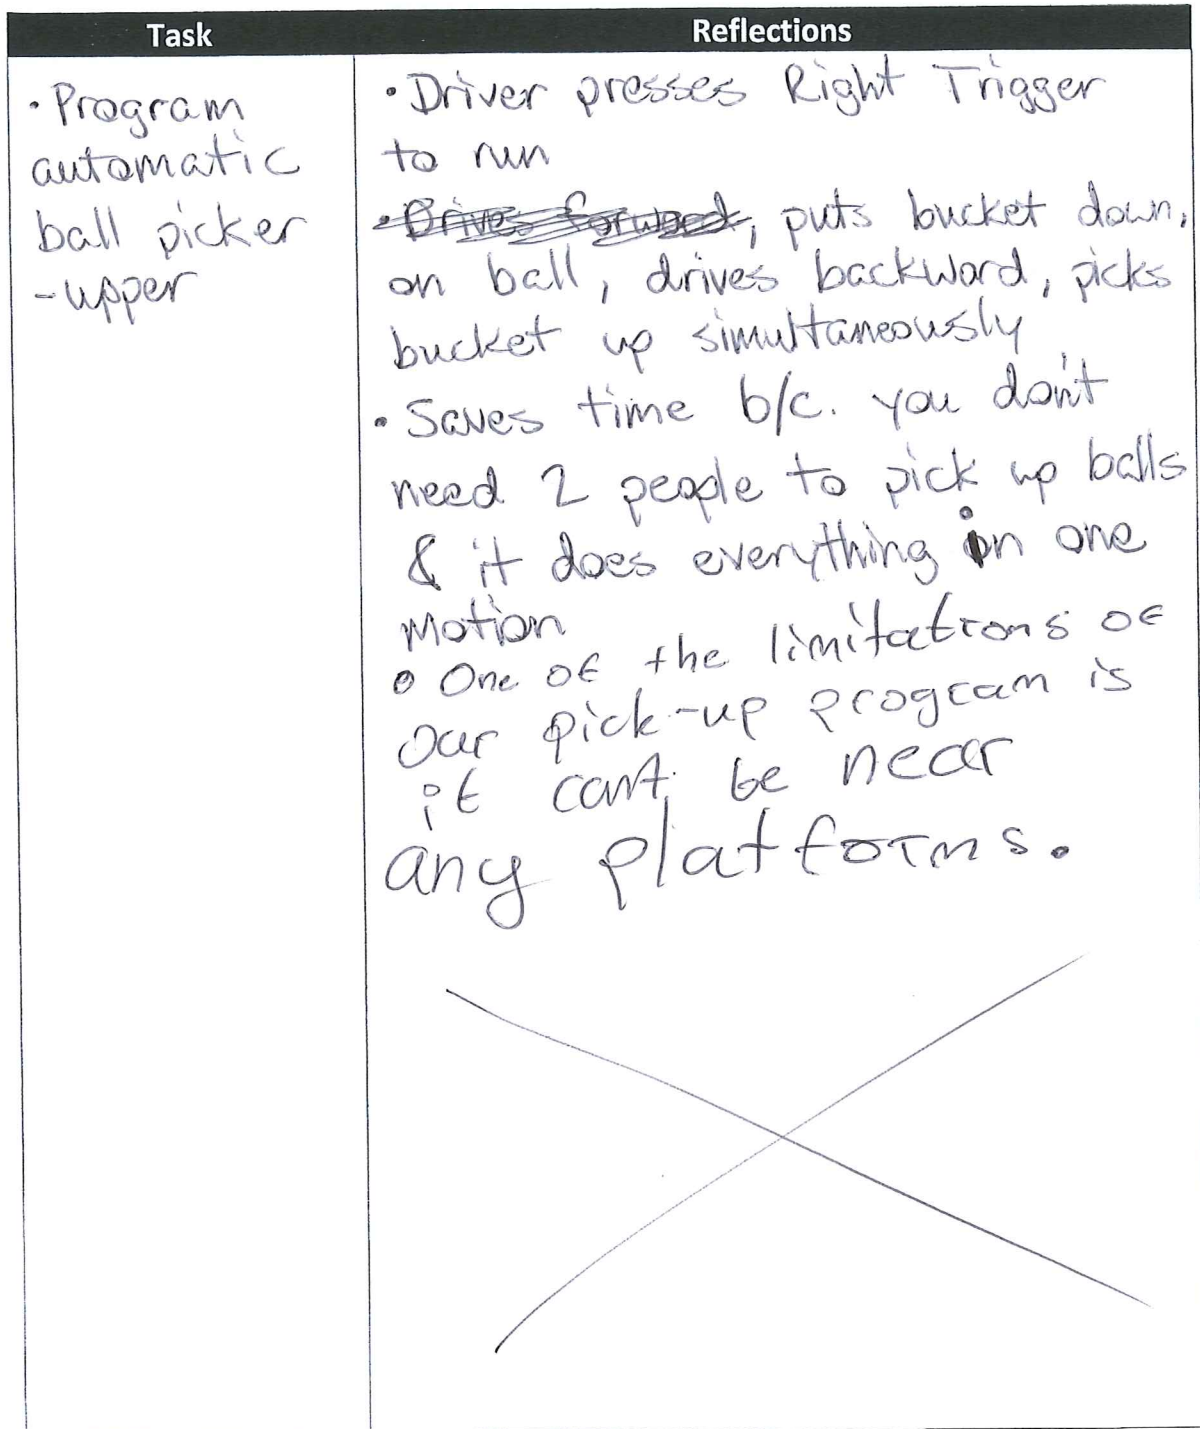 Task
Reflections
· Program
automatic
ball picker
-upper
· Driver presses Right Trigger
to run
· Drives forward, puts bucket down,
on ball, drives backward, picks
bucket up simultaneously
· Saves time b/c. you don't
need 2 people to pick up balls
& it does everything in one
motion
· One of the limitations of
our pick-up program is
it can't be near
any platforms.